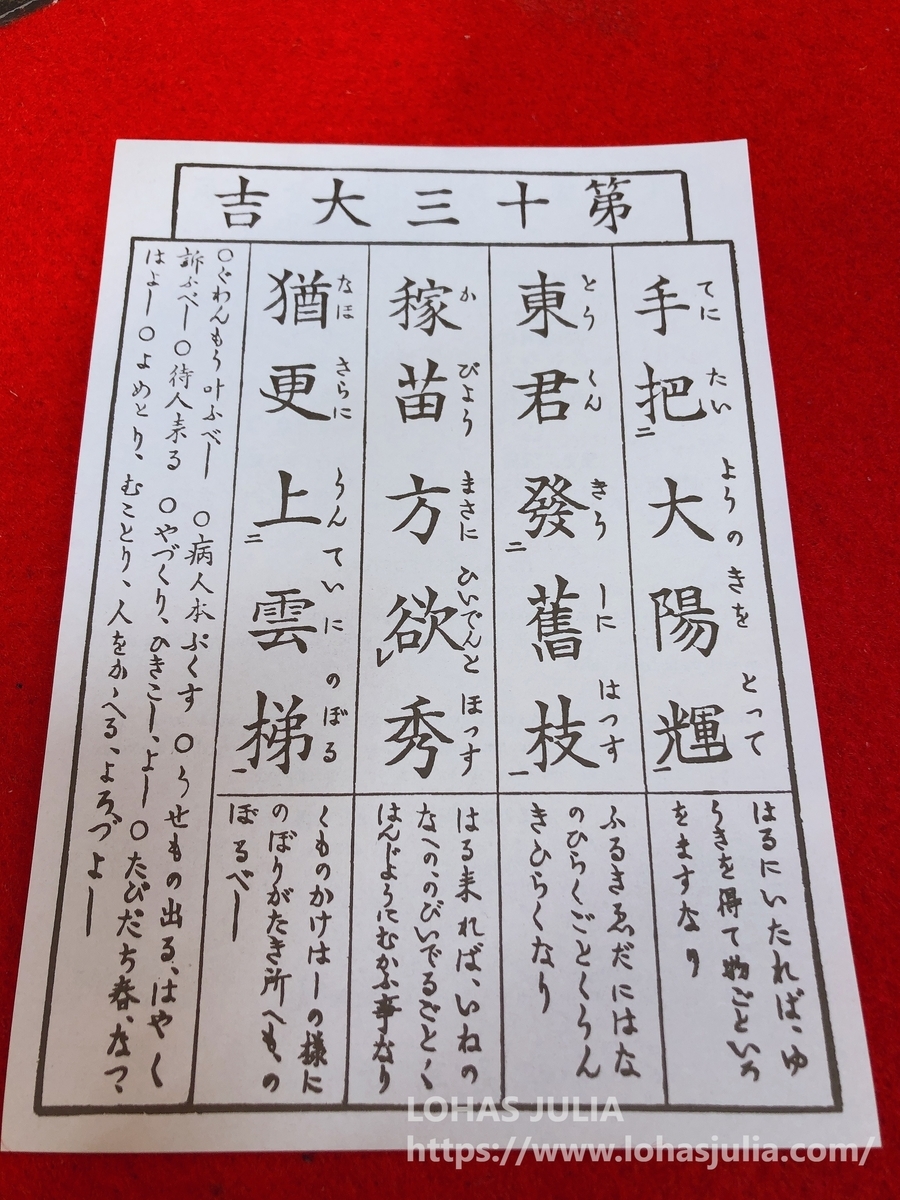 第十三大吉
手把大陽輝
てに たい ようの きを とって
はるにいたれば、ゆ
うきを得て物ごといろ
をますなり
東君發舊枝
とう くん きう しに はつす
ふるきゑだにはな
のひらくごとくうん
きひらくなり
稼苗方欲秀
か びょう まさに ひいでんと ほっす
はる来れば、いねの
なへの、のびいでるごとく
はんじようにむかふ事なり
猶更上雲梯
なほ さらに うん ていに のぼる
くものかけはしの様に
のぼりがたき所へも、の
ぼるべし
○ぐわんもう叶ふべし ○病人本ぷくす ○うせもの出る、はやく
訴ふべし ○待人来る ○やづくり、ひきこし、よし ○たびだち春、なつ、
はよし ○よめとり、むことり、人をかゝへる、よろづよし
LOHAS JULIA
https://www.lohasjulia.com/